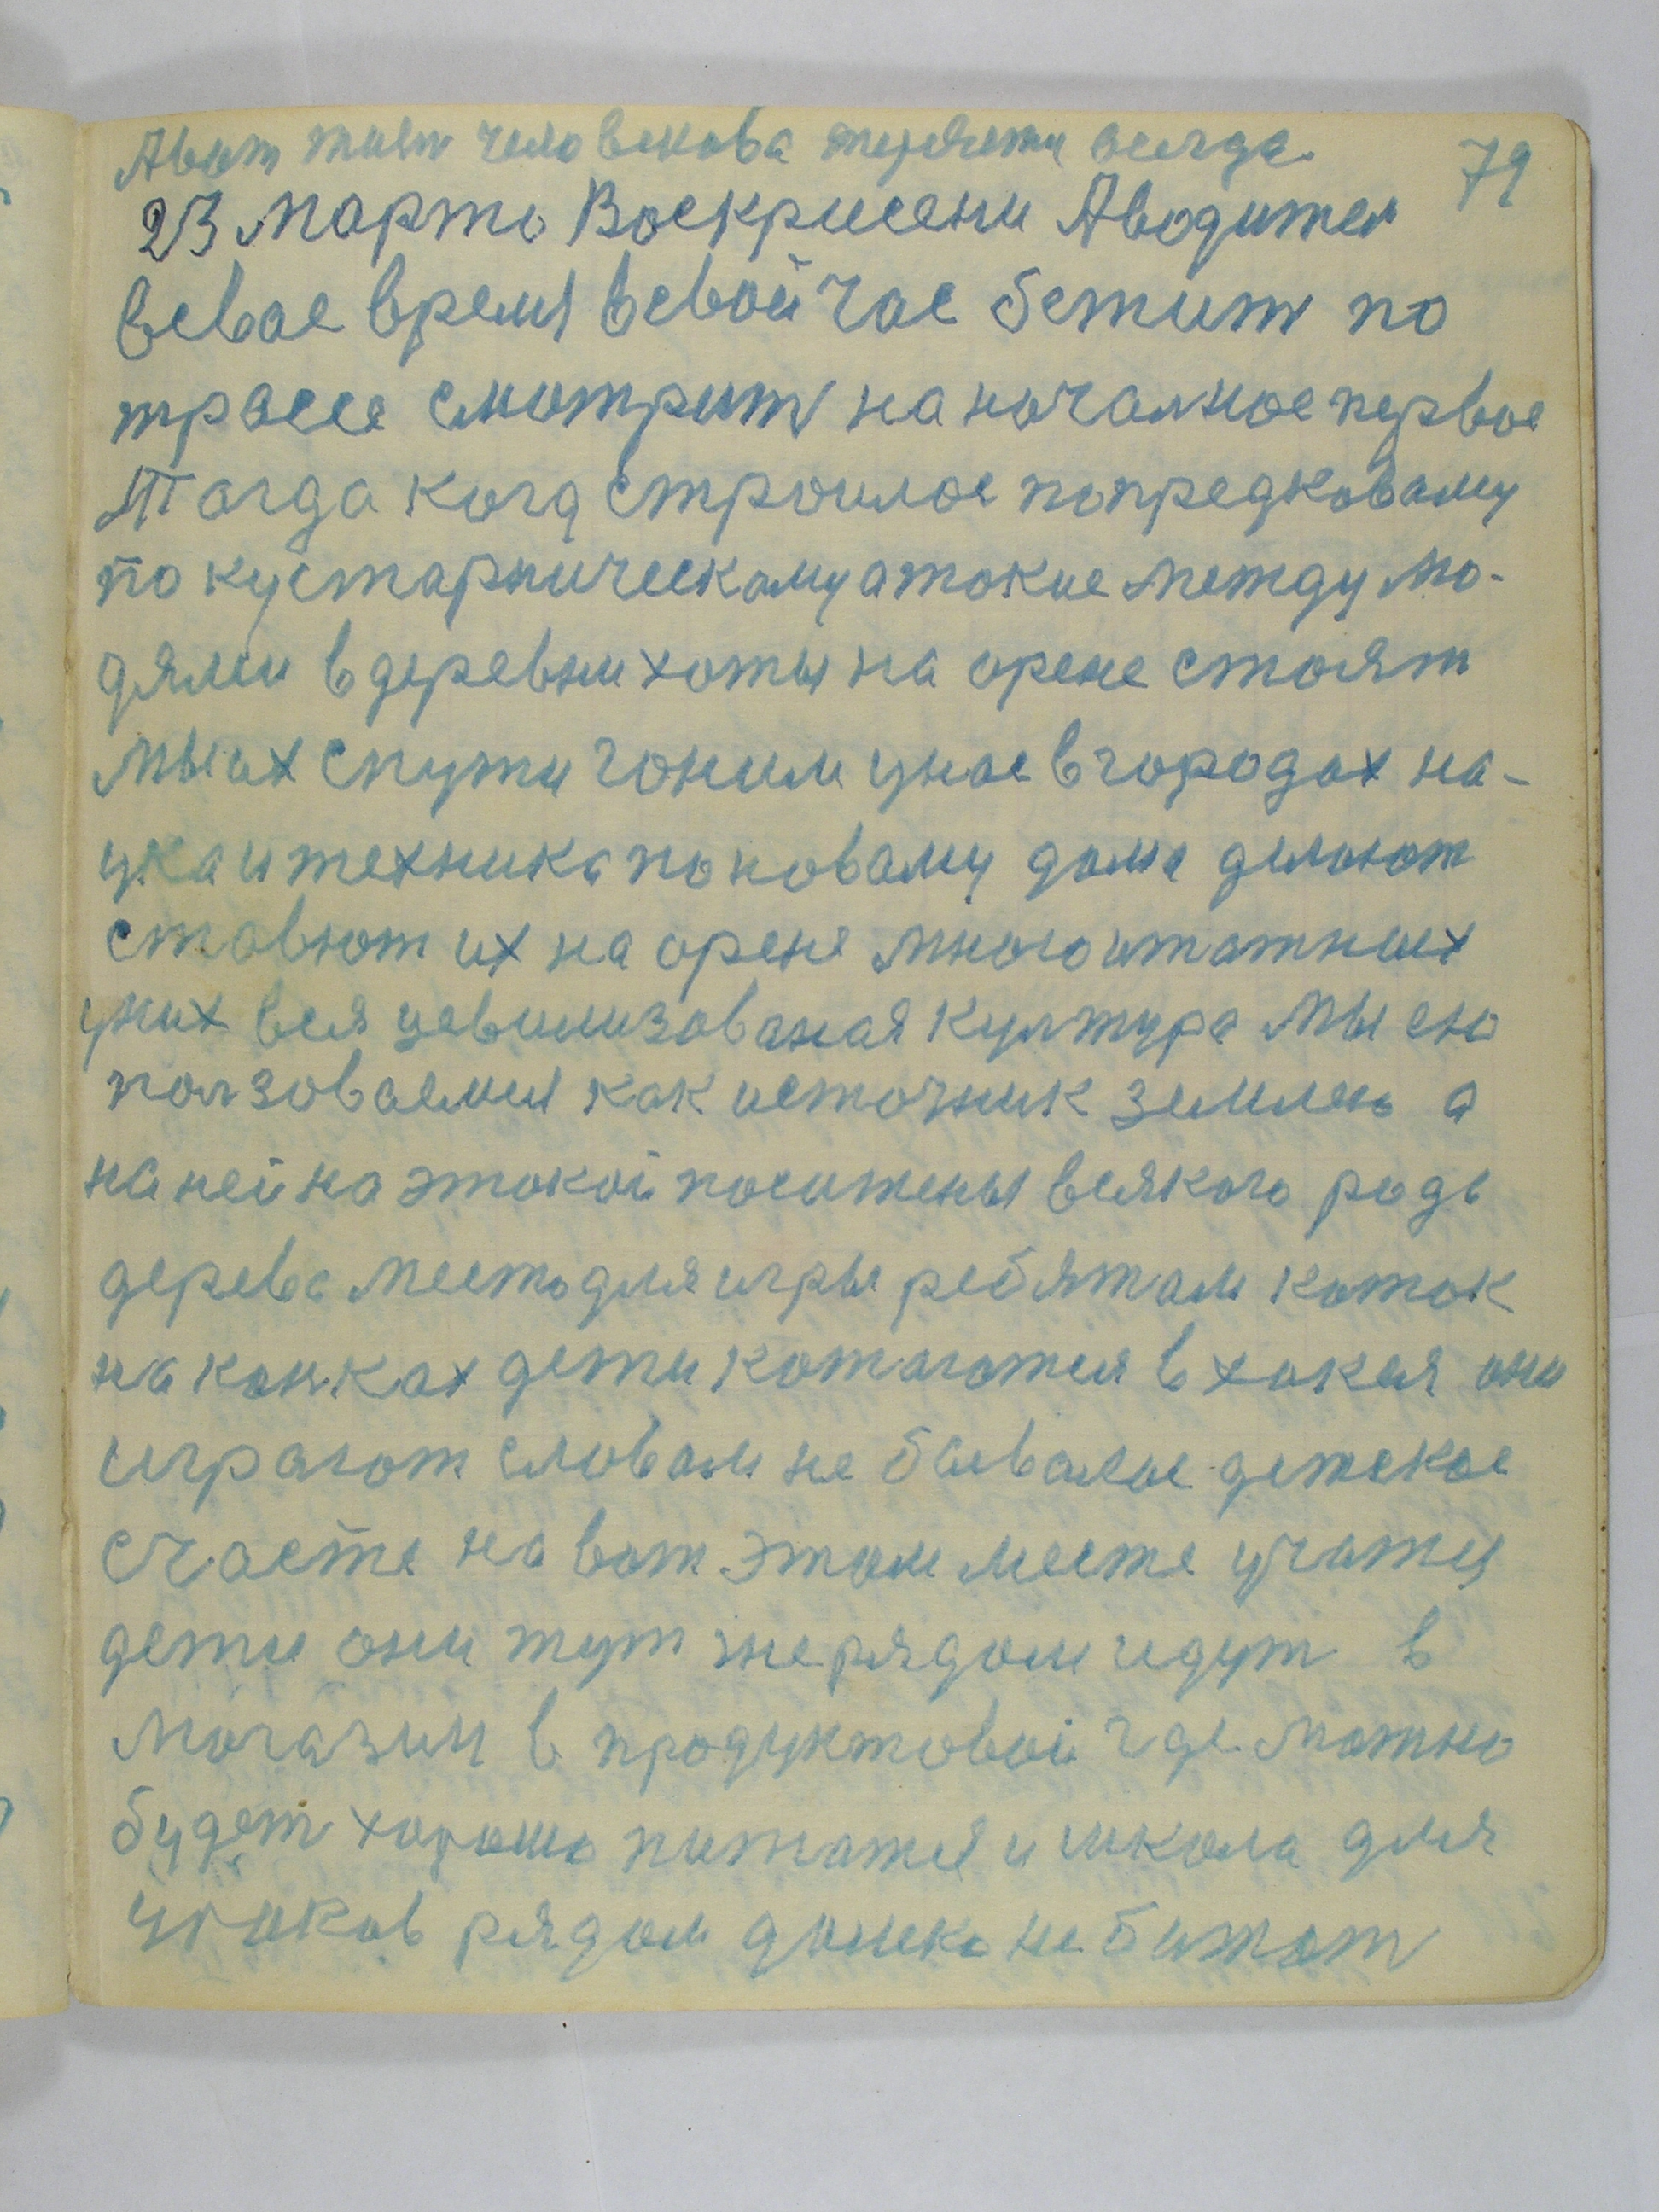 Авот жизн человекова теряетц всегда. 79
23 Марта Воскрисени Аводител
всвое время всвой час бежит по
трассе смотрит на началное первое
Тагда когд строилос попредковаму
по кустарническаму атокие между лю-
дями вдеревни хоты на арене стоят
мы их спути гоним унас вгородах на-
ука итехника поноваму дома делоют
ставют их на арене многоитажных
уних вся цевилизованая култура мы ею
ползоваемся как источник землею а
наней на этокой посажены всякого рода
дерева место дляигры ребятам каток
на коньках дети котаются в хокея они
играют словам не бывалое детское
счасте на вот этом месте учатц
дети они тут же рядом идут в
магазин в продуктовой где можно
будет хорошо питатся и школа для
уроков рядом далеко не бижат